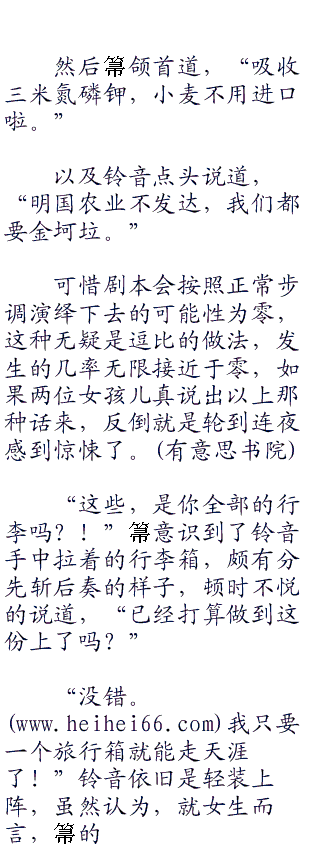 然后箒颌首道，“吸收
三米氮磷钾，小麦不用进口
啦。”
以及铃音点头说道，
“明国农业不发达，我们都
要金坷垃。”
可惜剧本会按照正常步
调演绎下去的可能性为零，
这种无疑是逗比的做法，发
生的几率无限接近于零，如
果两位女孩儿真说出以上那
种话来，反倒就是轮到连夜
感到惊悚了。(有意思书院)
“这些，是你全部的行
李吗？！”箒意识到了铃音
手中拉着的行李箱，颇有分
先斩后奏的样子，顿时不悦
的说道，“已经打算做到这
份上了吗？”
“没错。
(www.heihei66.com)我只要
一个旅行箱就能走天涯
了！”铃音依旧是轻装上
阵，虽然认为，就女生而
言，箒的